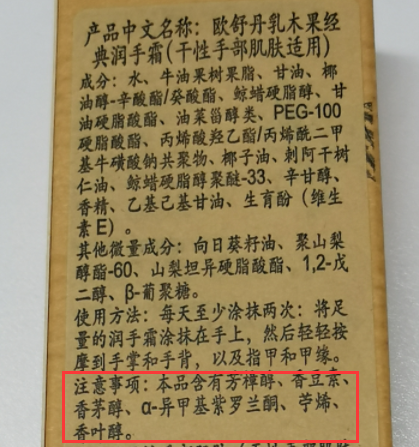 产品中文名称：欧舒丹乳木果经
典润手霜(干性手部肌肤适用)
成分：水、牛油果树果脂、甘油、椰
油醇-辛酸酯/癸酸酯、鲸蜡硬脂醇、甘
油硬脂酸酯、油菜甾醇类、PEG-100
硬脂酸酯、丙烯酸羟乙酯/丙烯酰二甲
基牛磺酸钠共聚物、椰子油、刺阿干树
仁油、鲸蜡硬脂醇聚醚-33、辛甘醇、
香精、乙基己基甘油、生育酚（维生
素E）。
其他微量成分：向日葵籽油、聚山梨
醇酯-60、山梨坦异硬脂酸酯、1,2-戊
二醇、β-葡聚糖。
使用方法：每天至少涂抹两次：将足
量的润手霜涂抹在手上，然后轻轻按
摩到手掌和手背，以及指甲和甲缘。
注意事项：本品含有芳樟醇、香豆素、
香茅醇、α-异甲基紫罗兰酮、苧烯、
香叶醇。